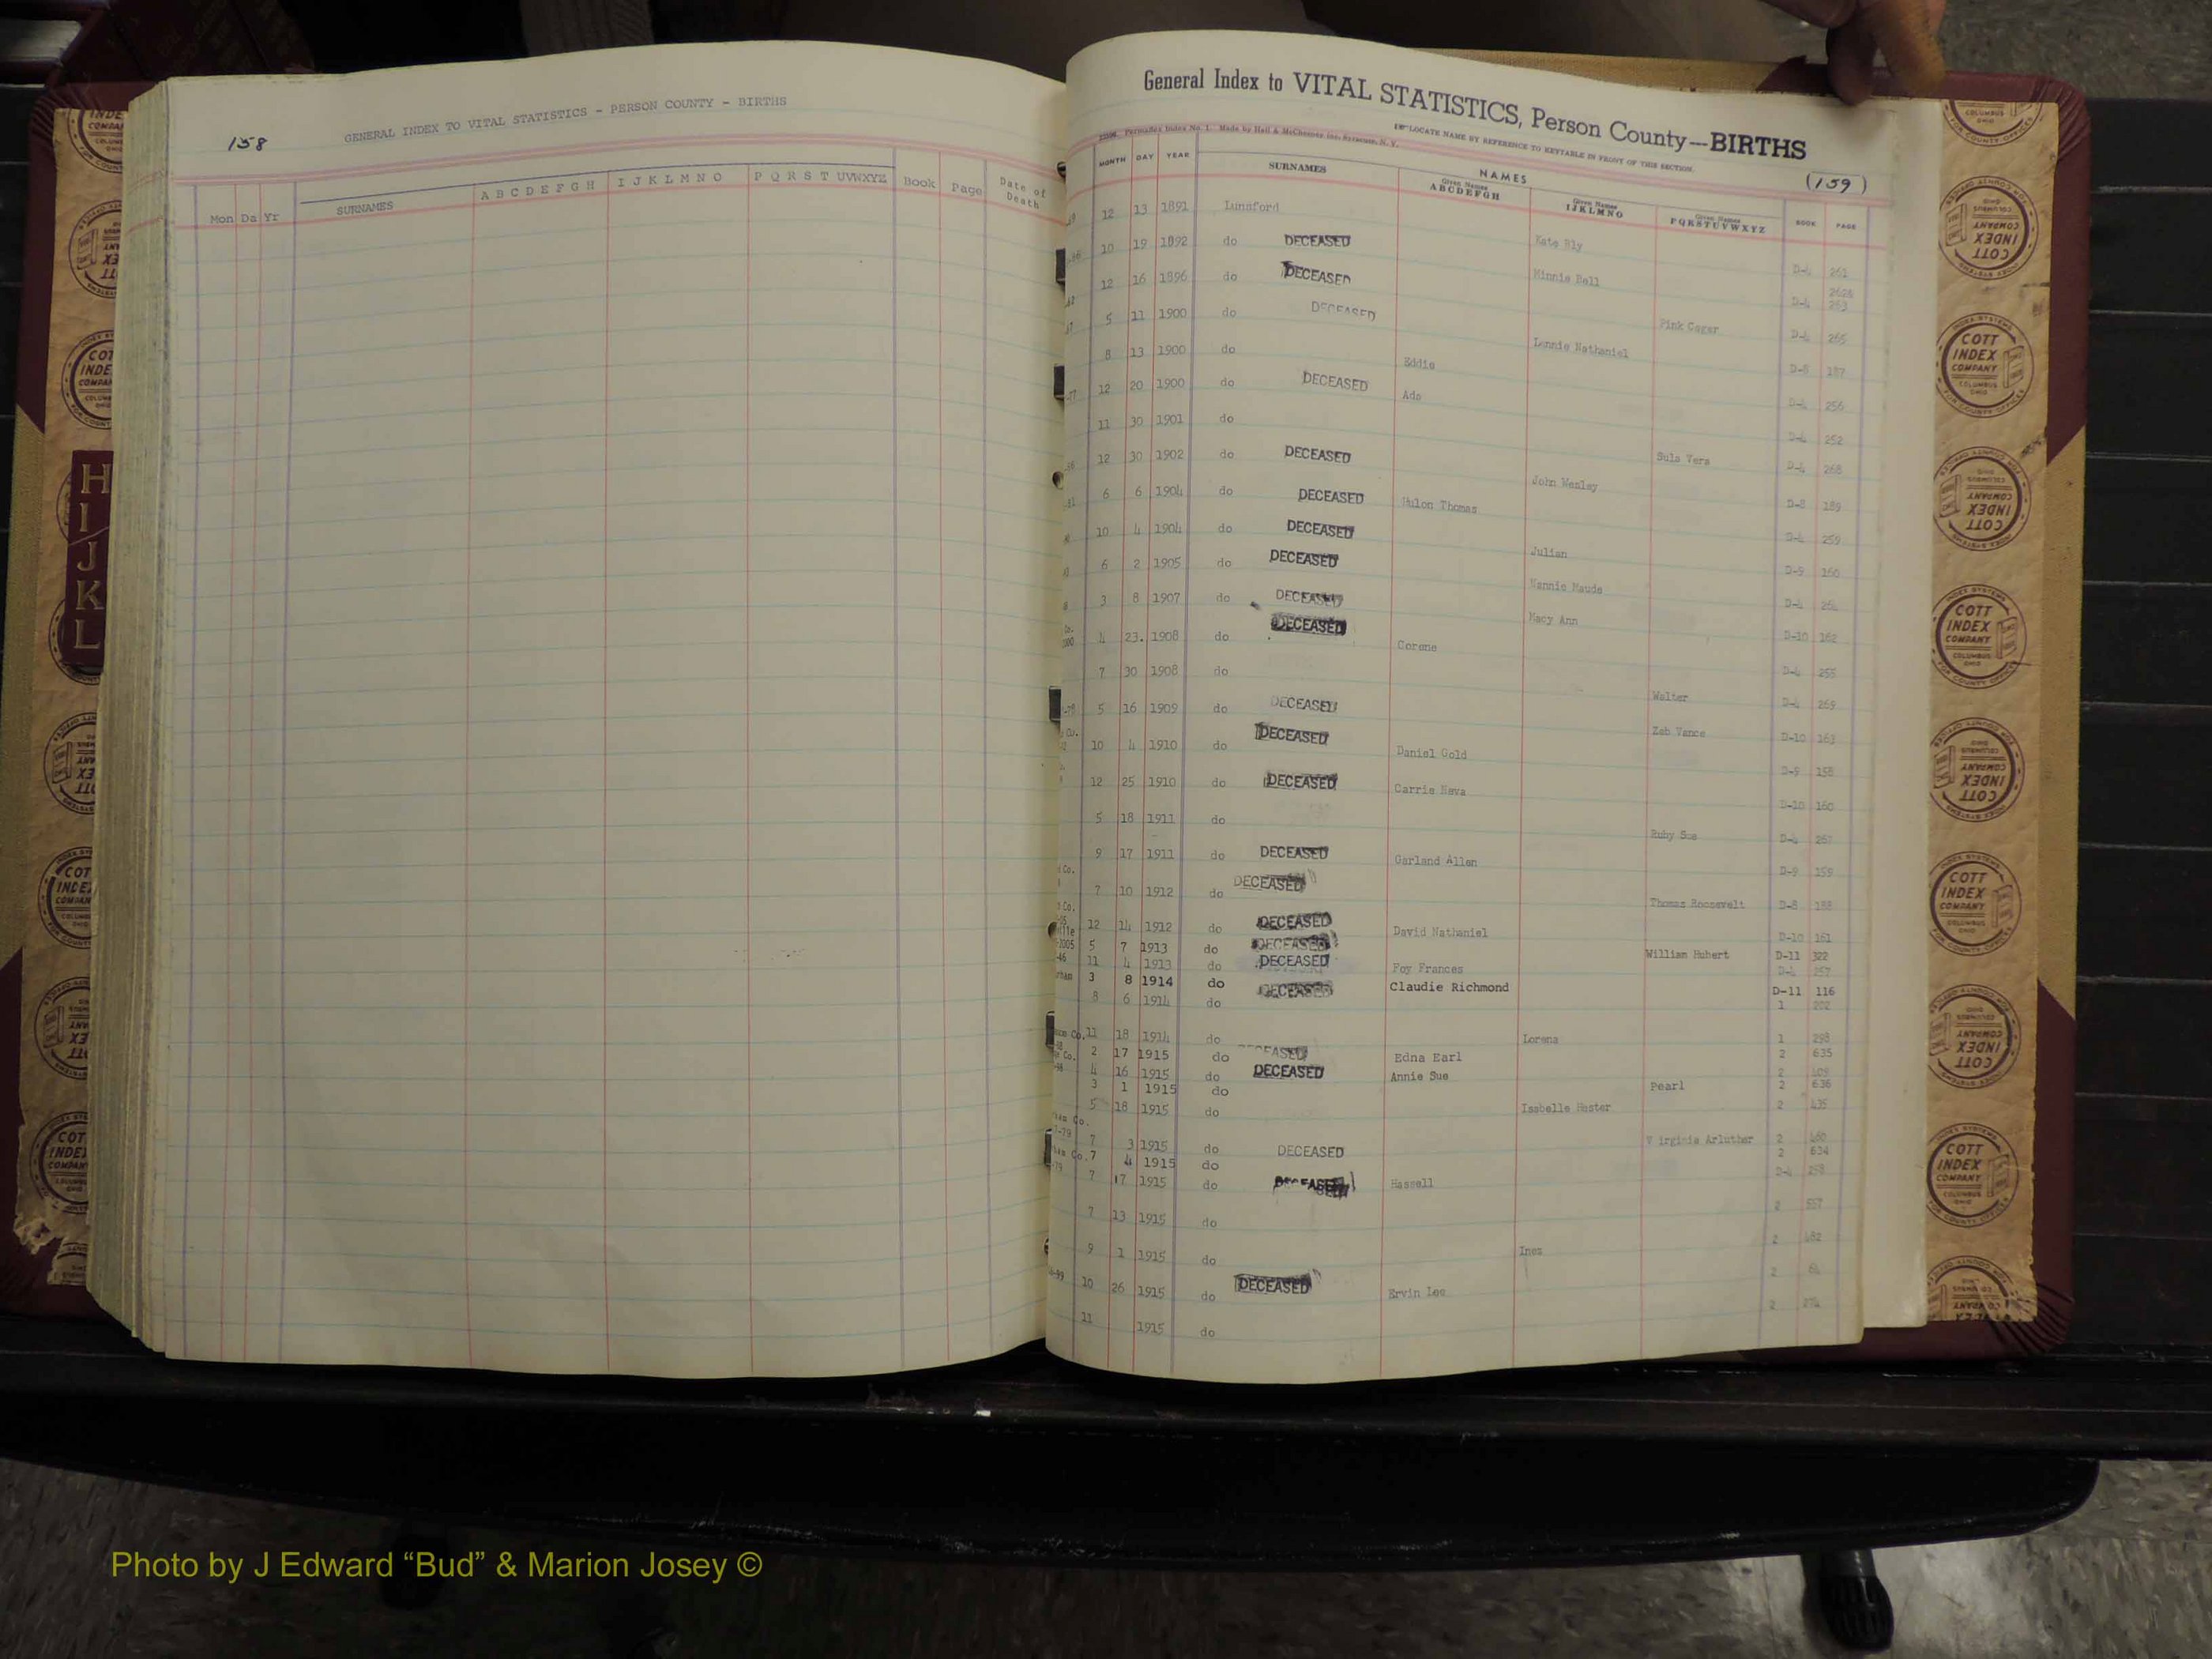 158
GENERAL INDEX TO VITAL STATISTICS - PERSON COUNTY - BIRTHS
Mon Da Yr SURNAMES A B C D E F G H I J K L M N O P Q R S T UVWXYZ Book Page Date of Death
General Index to VITAL STATISTICS, Person County—BIRTHS
LOCATE NAME BY REFERENCE TO KEYTABLE IN FRONT OF THIS SECTION
(159)
MONTH DAY YEAR SURNAMES NAMES Given Names ABCDEFGH Given Names IJKLMNO Given Names PQRSTUVWXYZ BOOK PAGE
12 13 1891 Lunsford Kate Bly D-4 261
10 19 1892 do DECEASED Minnie Bell D-4 263
12 16 1896 do DECEASED Pink Coger D-4 265
5 11 1900 do DECEASED Lonnie Nathaniel D-8 187
8 13 1900 do Eddie D-4 256
12 20 1900 do DECEASED Ada D-4 252
11 30 1901 do Sula Vera D-4 268
12 30 1902 do DECEASED John Wesley D-8 189
6 6 1904 do DECEASED Hulon Thomas D-4 259
10 4 1904 do DECEASED Julian D-9 160
6 2 1905 do DECEASED Nannie Maude D-4 264
3 8 1907 do DECEASED Macy Ann D-10 162
4 23. 1908 do DECEASED Corene D-4 255
7 30 1908 do Walter D-4 269
5 16 1909 do DECEASED Zeb Vance D-10 163
10 4 1910 do DECEASED Daniel Gold D-9 158
12 25 1910 do DECEASED Carrie Neva D-10 160
5 18 1911 do Ruby Sue D-4 267
9 17 1911 do DECEASED Garland Allen D-9 159
7 10 1912 do DECEASED Thomas Roosevelt D-8 188
12 14 1912 do DECEASED David Nathaniel D-10 161
5 7 1913 do DECEASED William Hubert D-11 322
11 4 1913 do DECEASED Foy Frances D-4 257
3 8 1914 do DECEASED Claudie Richmond D-11 116
8 6 1914 do 1 202
11 18 1914 do Lorena 1 298
2 17 1915 do DECEASED Edna Earl 2 635
4 16 1915 do DECEASED Annie Sue 2 409
3 1 1915 do Pearl 2 636
5 18 1915 do Isabelle Hester 2 435
7 3 1915 do DECEASED Virginia Arluther 2 460
7 4 1915 do 2 634
7 17 1915 do DECEASED Hassell D-4 258
7 13 1915 do 2 557
9 1 1915 do Inez 2 482
10 26 1915 do DECEASED Ervin Lee 2 64
11 1915 do 2 274
H
I
J
K
L
COTT INDEX COMPANY COLUMBUS OHIO
INDEX SYSTEMS FOR COUNTY OFFICES
Photo by J Edward “Bud” & Marion Josey ©